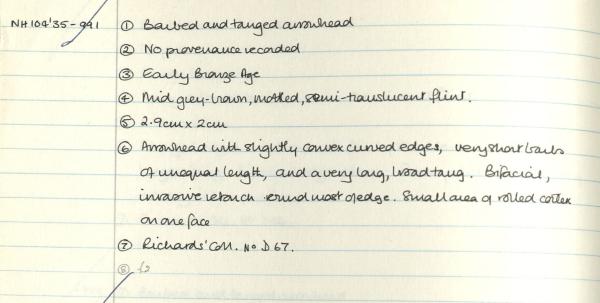 NH104'35-991 ① Barbed and tanged arrowhead
② No provenance recorded
③ Early Bronze Age
④ Mid grey-brown, mottled, semi-translucent flint.
⑤ 2.9cm x 2cm
⑥ Arrowhead with slightly convex curved edges, very short barbs
of unequal length, and a very long, broad tang. Bifacial,
invasive retouch round most of edge. Small area of rolled cortex
on one face
⑦ Richards' Coll. No D67.
⑧